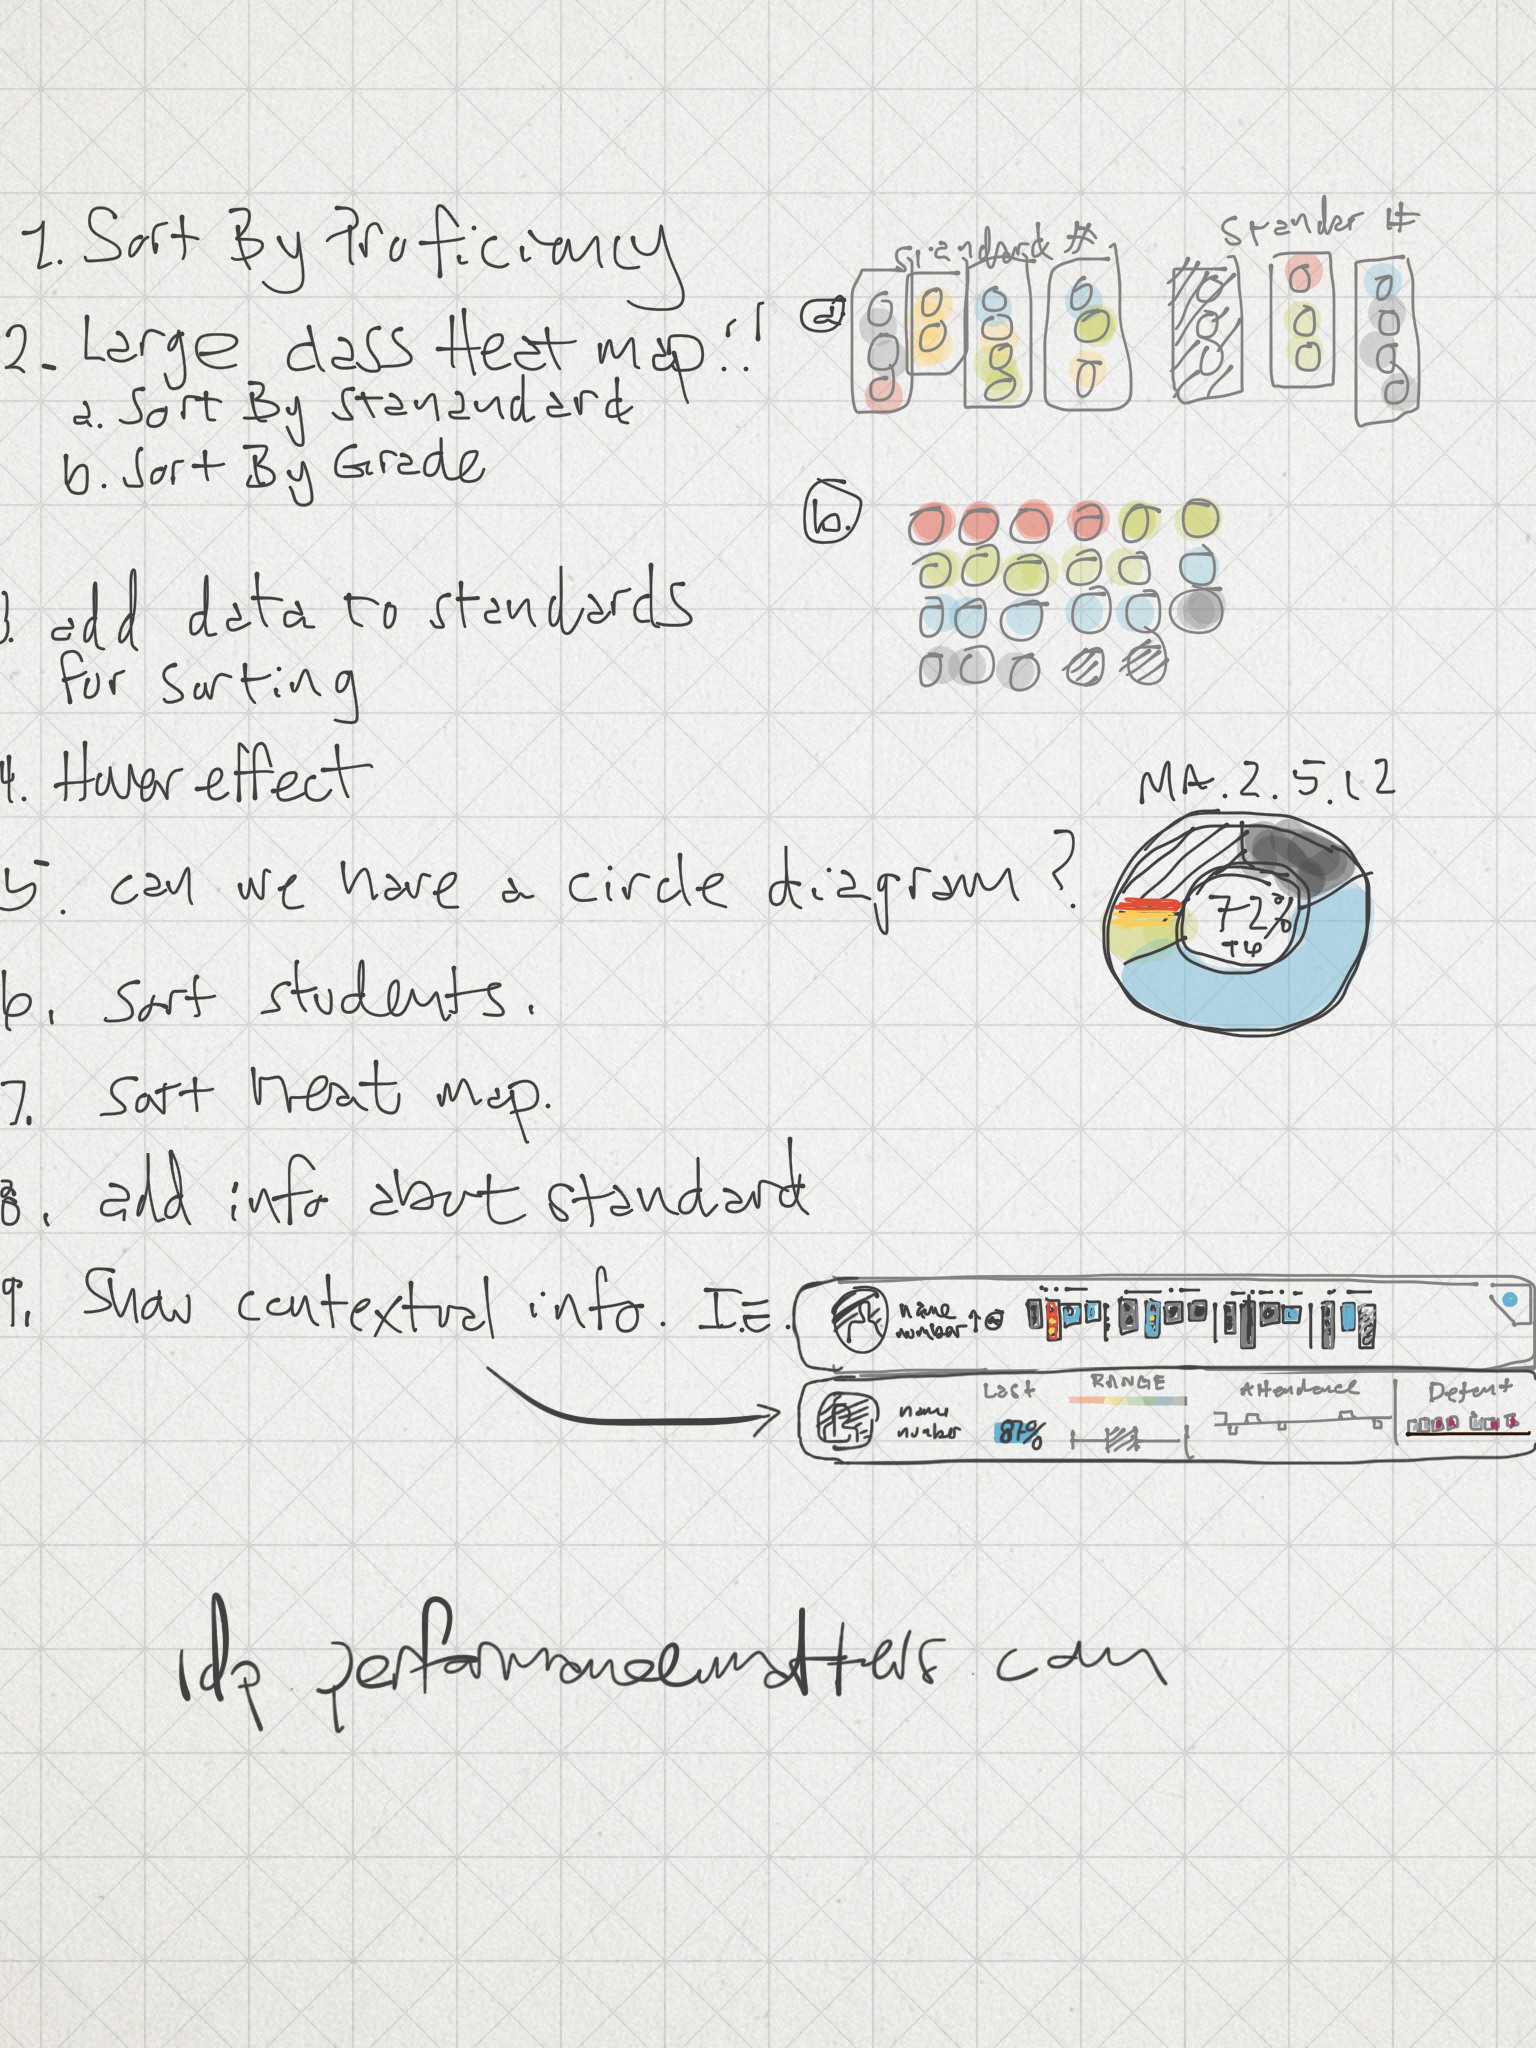 1. Sort By Proficiency
2. Large class Heat map!!
a. Sort By stanandard
b. Sort By Grade
3. add data to standards
for sorting
4. Hover effect
5. can we have a circle diagram?
6. sort students.
7. sort heat map.
8. add info about standard
9. Show contextual info. I.E.
a
standard #
stander #
b.
MA.2.5.12
72%
name
number
name
number
Last
87%
RANGE
Attendance
idp performancematters com